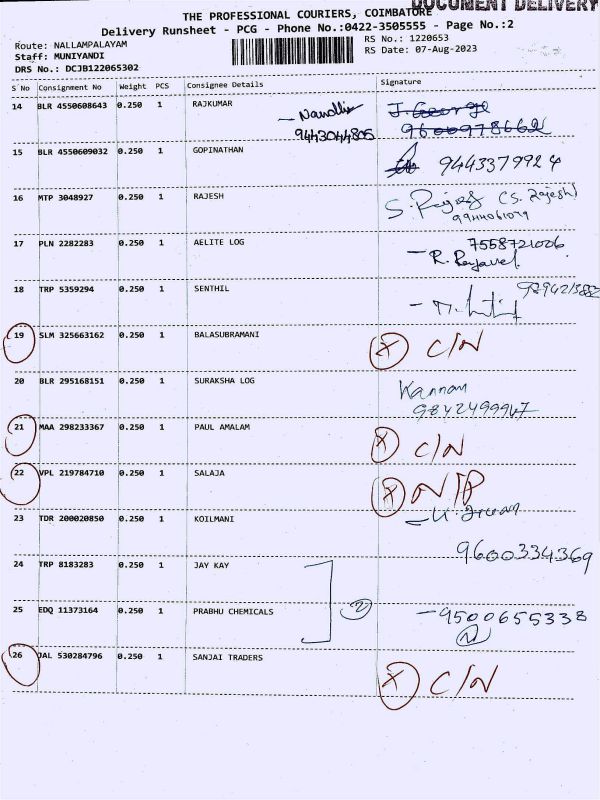 DOCUMENT DELIVERY
THE PROFESSIONAL COURIERS, COIMBATORE
Delivery Runsheet - PCG - Phone No.:0422-3505555 - Page No.:2
Route: NALLAMPALAYAM
RS No.: 1220653
Staff: MUNIYANDI
RS Date: 07-Aug-2023
DRS No.: DCJB122065302
S No Consignment No Weight PCS Consignee Details Signature
14 BLR 4550608643 0.250 1 RAJKUMAR J. George
9443044806 9600978662
15 BLR 4550609032 0.250 1 GOPINATHAN 9443379924
16 MTP 3048927 0.250 1 RAJESH S. Rajesh (S. Rajesh)
9944061079
17 PLN 2282283 0.250 1 AELITE LOG 7558721006
18 TRP 5359294 0.250 1 SENTHIL
19 SLM 325663162 0.250 1 BALASUBRAMANI X C/N
20 BLR 295168151 0.250 1 SURAKSHA LOG Kannan
9842499947
21 MAA 298233367 0.250 1 PAUL AMALAM X C/N
22 VPL 219784710 0.250 1 SALAJA X N/P
23 TDR 200020850 0.250 1 KOILMANI
9600334369
24 TRP 8183283 0.250 1 JAY KAY
2
25 EDQ 11373164 0.250 1 PRABHU CHEMICALS 9500655338
26 JAL 530284796 0.250 1 SANJAI TRADERS X C/N